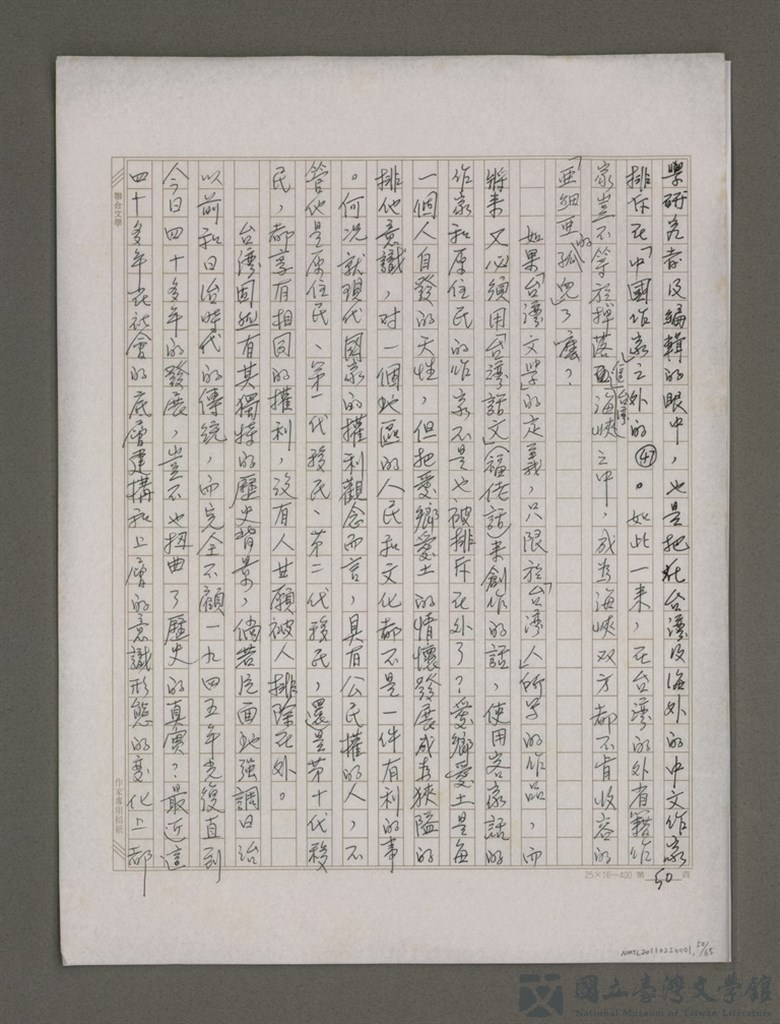 學研究者及編輯的眼中，也是把在台灣及海外的中文作家
排斥在「中國作家」之外的㊼。如此一來，在台灣的外省籍作
家豈不等於掉落進台灣海峽之中，成為海峽双方都不肯收容的
「亜細亜的孤兒」了麼？
如果「台灣文學」的定義，只限於「台灣人」所写的作品，而
將来又必須用「台灣話文」（福佬話）来創作的話，使用客家話的
作家和原住民的作家不是也被排斥在外了？愛鄉愛土是每
一個人自發的天性，但把愛鄉愛土的情懷發展成為狹隘的
排他意識，对一個地區的人民和文化都不是一件有利的事
。何況就現代國家的權利觀念而言，具有公民權的人，不
管他是原住民、第一代移民、第二代移民，還是第十代移
民，都享有相同的權利，沒有人甘願被人排除在外。
台灣固然有其獨特的歷史背景，倘若片面地強調日治
以前和日治時代的傳統，而完全不顧一九四五年光復直到
今日四十多年的發展，豈不也扭曲了歷史的真實？最近這
四十多年在社會的底層建構和上層的意識形態的变化上都
聯合文學
作家專用稿紙
25×16=400 第 50 頁
NMTL20110226001, 50/65
國立臺灣文學館
National Museum of Taiwan Literature